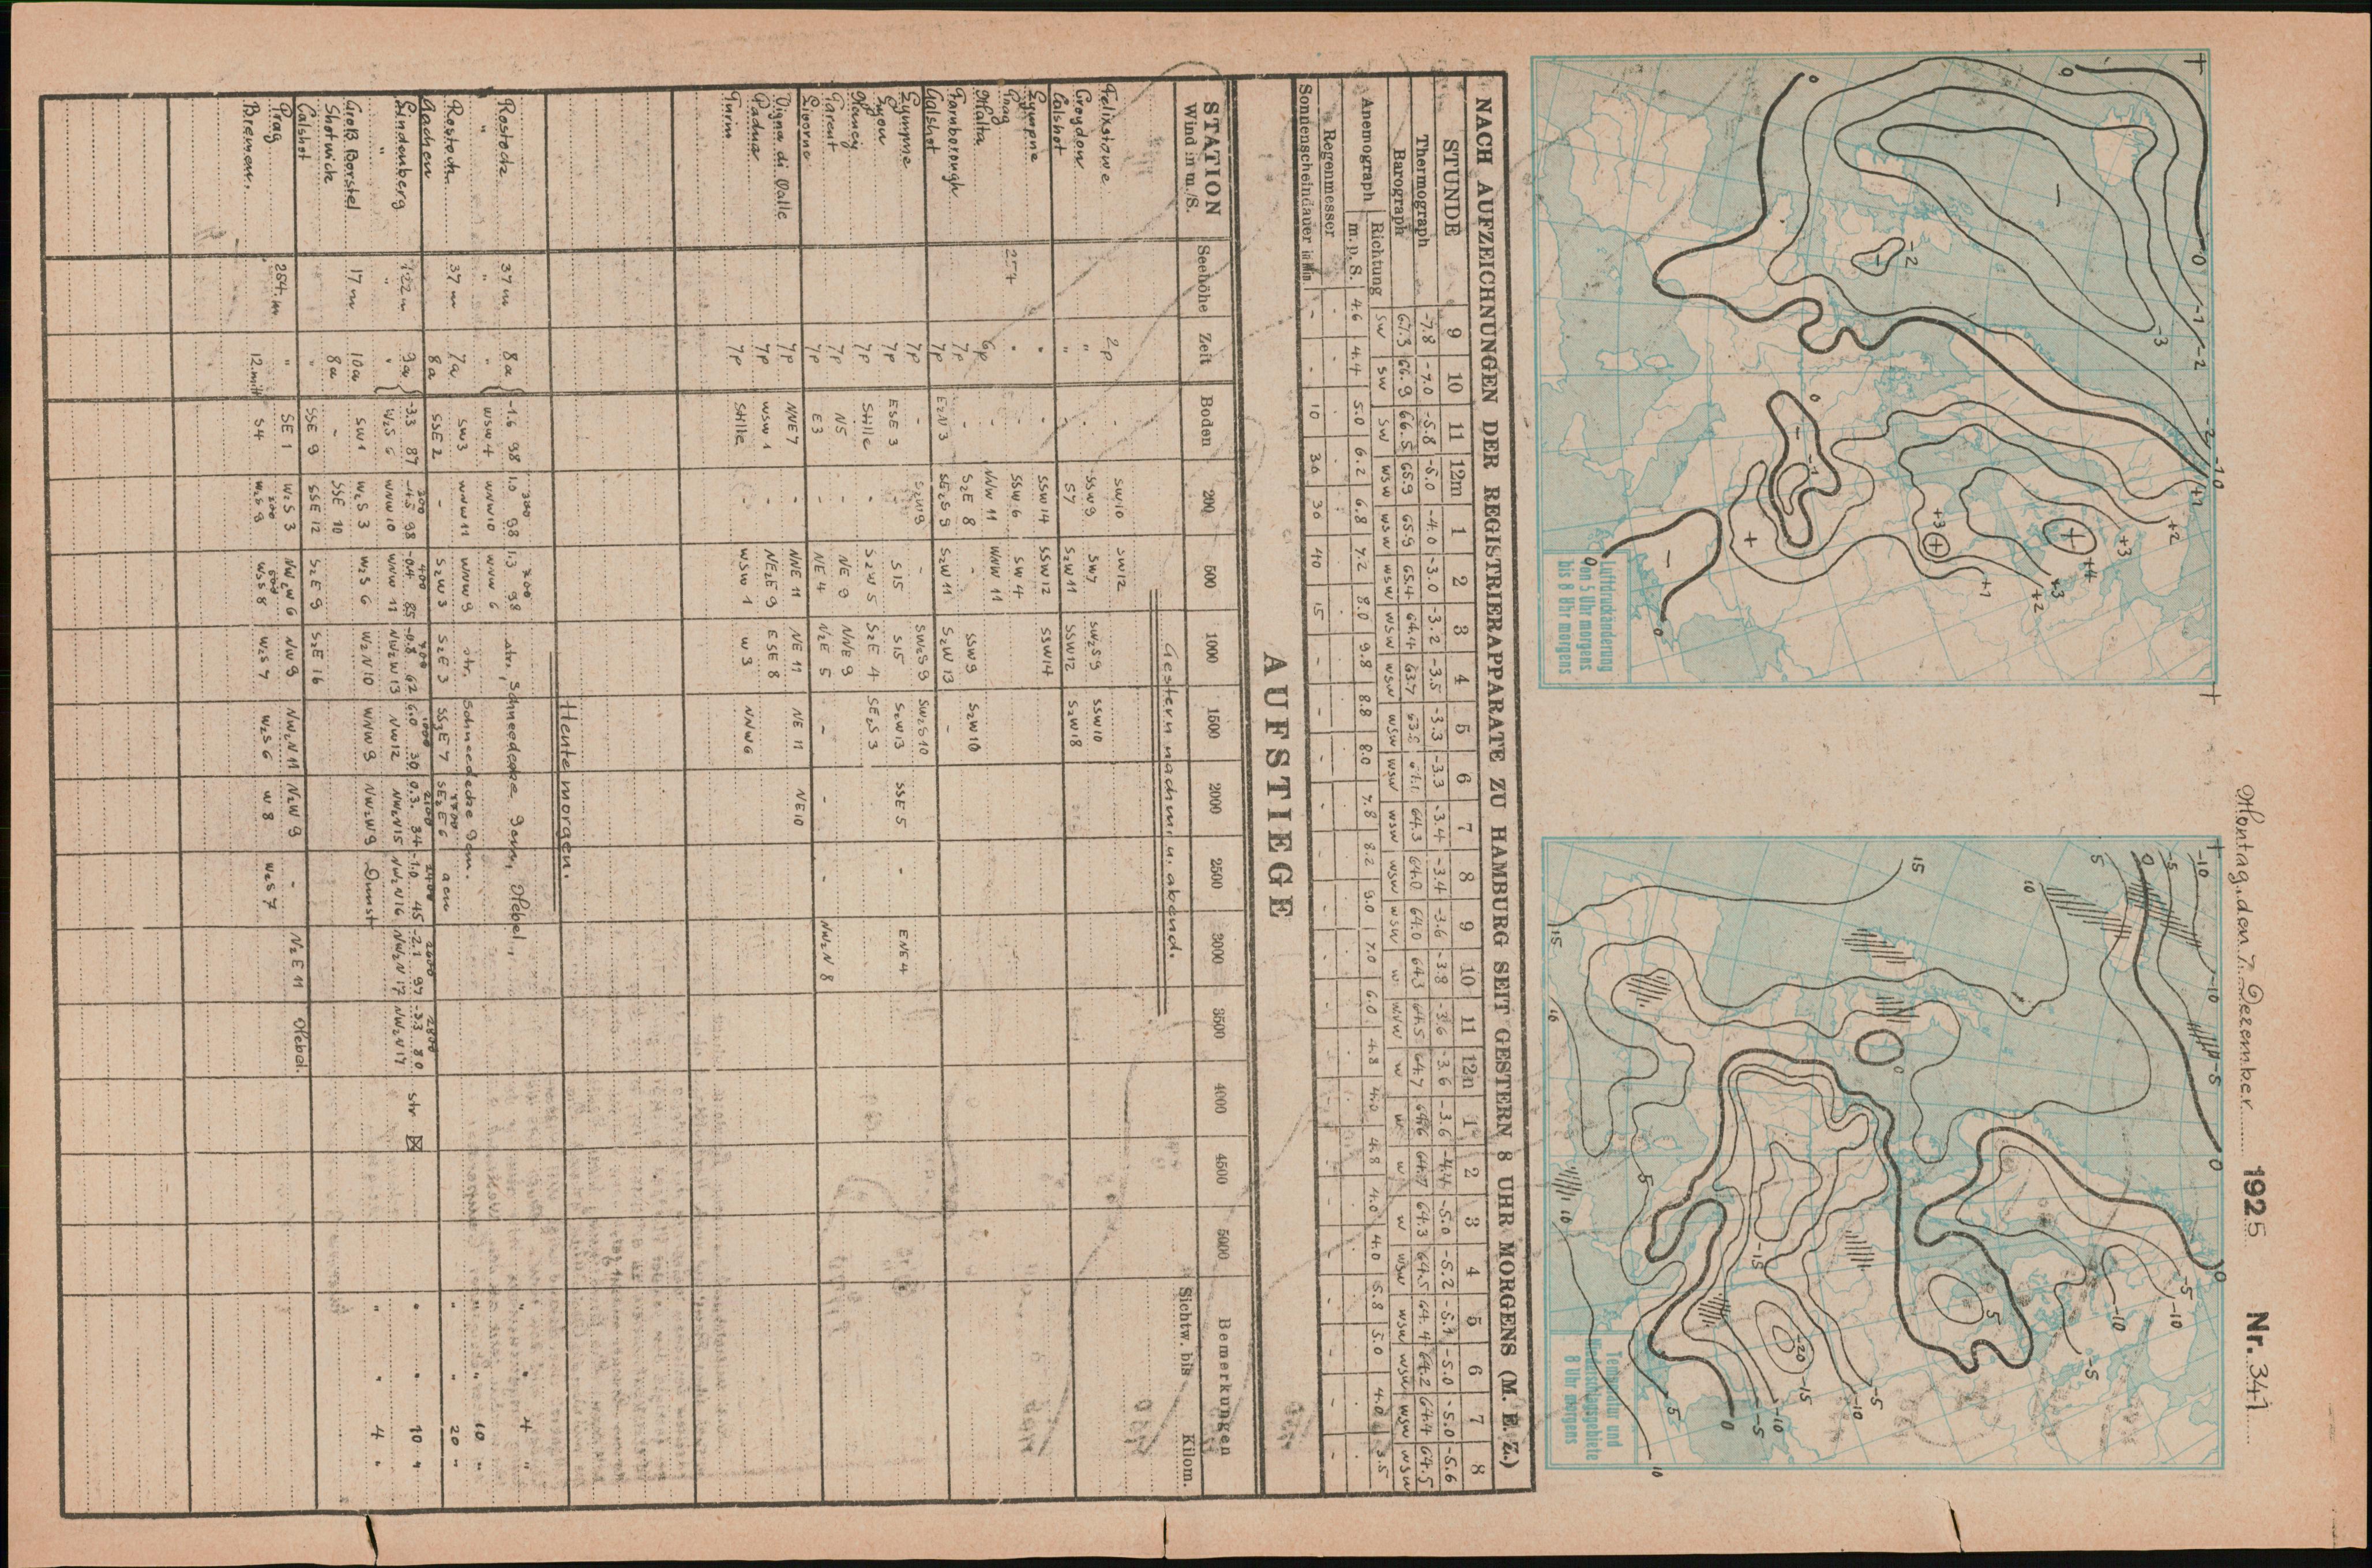 Montag, den 7. Dezember 1925 Nr. 341
Luftdruckänderung
von 5 Uhr morgens
bis 8 Uhr morgens
Temperatur und
Niederschlagsgebiete
8 Uhr morgens
NACH AUFZEICHNUNGEN DER REGISTRIERAPPARATE ZU HAMBURG SEIT GESTERN 8 UHR MORGENS (M. E. Z.)
STUNDE 9 10 11 12m 1 2 3 4 5 6 7 8 9 10 11 12n 1 2 3 4 5 6 7 8
Thermograph -7.8 -7.0 -5.8 -5.0 -4.0 -3.0 -3.2 -3.5 -3.3 -3.3 -3.4 -3.4 -3.6 -3.8 -3.6 -3.6 -3.6 -4.4 -5.0 -5.2 -5.4 -5.0 -5.0 -5.6
Barograph 67.3 66.9 66.5 65.9 65.9 65.4 64.4 63.7 64.3 64.0 64.0 64.3 64.5 64.7 64.6 64.7 64.3 64.5 64.4 64.2 64.4 64.5
Anemograph Richtung SW SW SW WSW WSW WSW WSW WSW WSW WSW WSW WSW WSW W WNW W W W W WSW WSW WSW WSW WSW
m. p. S. 4.6 4.4 5.0 6.2 6.8 7.2 8.0 9.8 8.8 8.0 7.8 8.2 9.0 7.0 6.0 4.8 4.0 4.8 4.0 4.0 5.8 5.0 4.0 3.5
Regenmesser
Sonnenscheindauer in Min. - - 10 30 30 40 15 - - - - - - - - - - - - - - - - -
AUFSTIEGE
STATION Seehöhe Zeit Boden 200 500 1000 1500 2000 2500 3000 3500 4000 4500 5000 Bemerkungen
Wind in m/S. Sichtw. bis Kilom.
Gestern nachm. u. abend.
Felixstowe 2p - SW10 SW12
Croydon " - SSW9 SW7 SWzS9 SSW10
Calshot " - S7 SzW11 SSW12 SzW18
Lympne " - SSW14 SSW12 SSW14
Prag 254 " - SSW6 SW4
Malta 6p - NNW 11 WNW 11
Farnborough 7p - SzE 8 - SSW9 SzW10
Calshot 7p EzN3 SEzS9 SzW11 SzW13 -
Lympne 7p - SzW9 - SWzS9 SWzS10
Lyon 7p ESE 3 - S15 S15 SzW13 SSE5 - ENE4
Nancy 7p Stille - SzW5 SzE 4 SEzS3
Parent 7p N5 - NE 9 NNE 9
Livorno 7p E3 - NE 4 NzE 5 - - - NWzN 8
Vigna di Valle 7p NNE7 - NNE 11 NE 11 NE 11 NE10
Padua 7p WSW 1 - NEzE 9 ESE 8
Turin 7p Stille - WSW 1 W3 NNW6
Heute morgen.
Rostock 37m 8a -1.6 98 300 1.0 98 700 1.3 98 str, Schneedecke 9cm, Nebel, 4 "
" " " WSW 4 WNW10 WNW 6 10 "
Rostock 37m 7a SW3 WNW11 WNW9 str. Schneedecke 9cm. 20 "
Aachen 8a SSE 2 - SzW3 SzE 3 SSzE 7 SEzE 6 acu
Lindenberg 122m 9a -3.3 87 300 -4.5 98 400 -0.4 85 700 -0.8 62 1000 6.0 30 2100 0.3 34 2400 -1.0 45 2600 -2.1 97 2800 -3.3 80 str 10 "
" " " WzS 6 WNW 10 WNW 11 NWzW13 NW12 NWzN15 NWzN16 NWzN 17 NWzN17
Groß Borstel 17m 10a SW1 WzS 3 WzS 6 WzN10 WNW9 NWzW9 Dunst 4 "
Shotwick 8a - SSE 10
Calshot " SSE 9 SSE 12 SzE 9 SzE 16
Prag 254m " SE 1 WzS 3 NWzW6 NW9 NWzN11 NzW 9 - NzE 11 Nebel.
Bremen. 12.mitt S4 200 WzS 9 500 WzS 8 WzS 7 WzS 6 W8 WzS 7